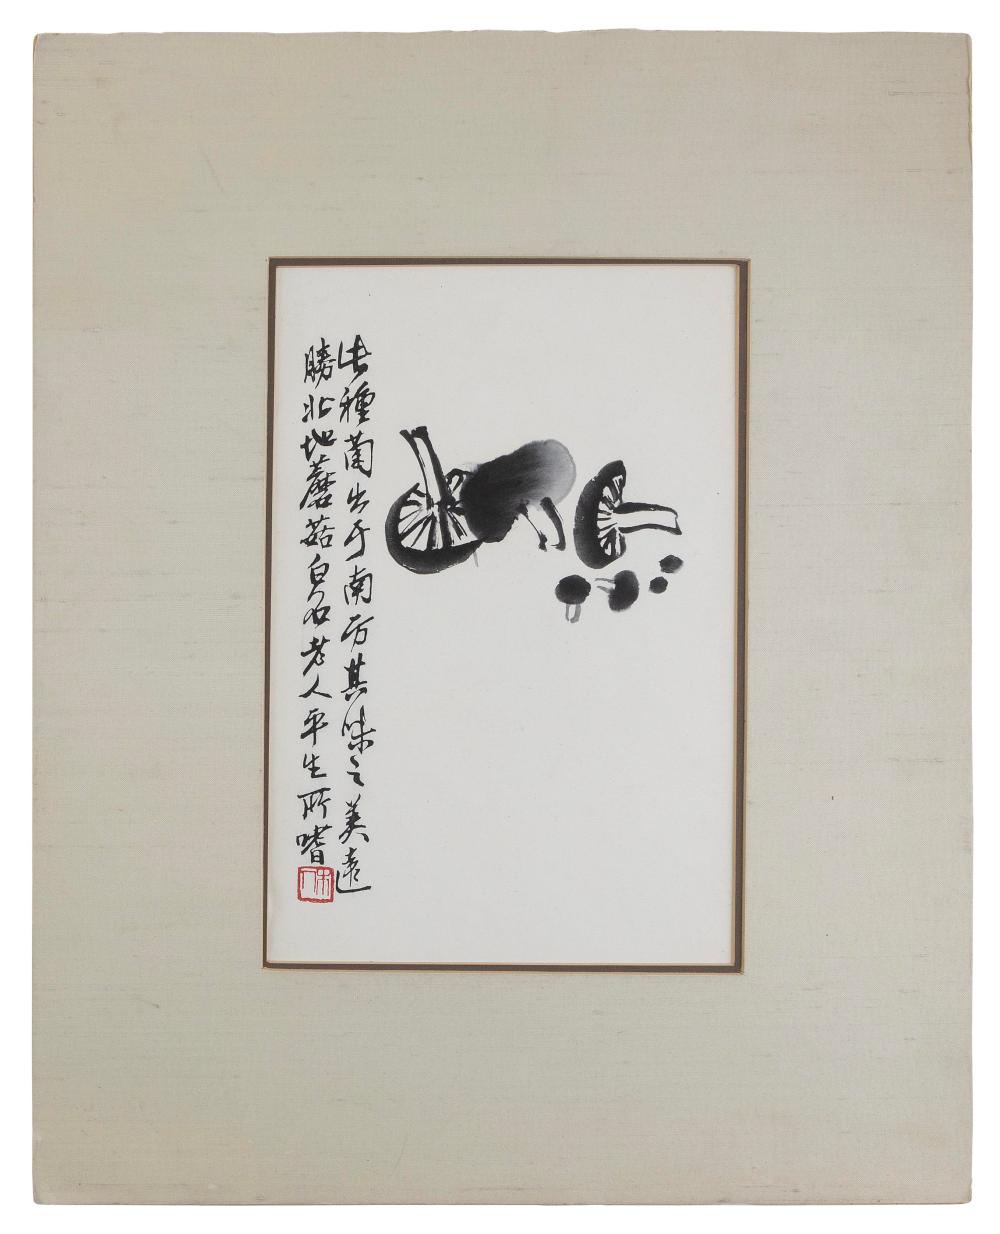 此種菌出于南方其味之美遠
勝北地蘑菇白石老人平生所嗜
木人